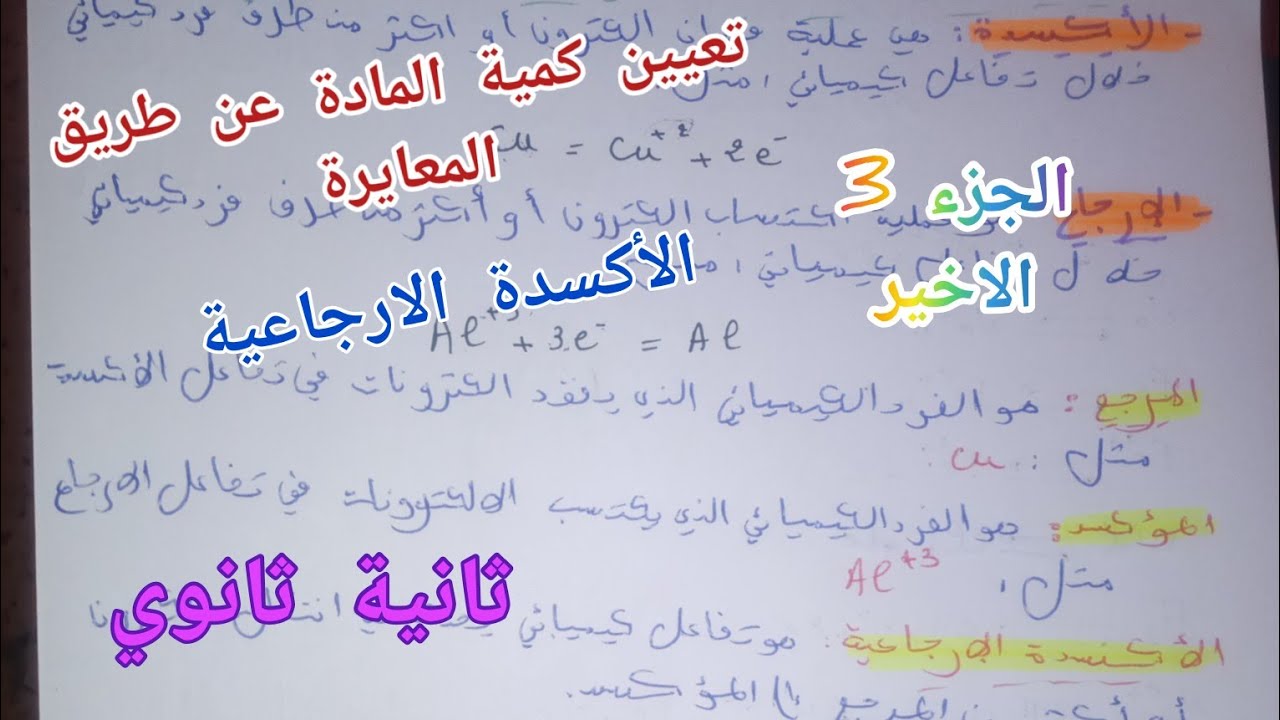 - الأكسدة: هي عملية فقدان الكترون أو اكثر من طرف فرد كيميائي
خلال تفاعل كيميائي، مثل
Cu = Cu+2 + 2e-
- الإرجاع هي عملية اكتساب الكترون أو أكثر من طرف فرد كيميائي
خلال تفاعل كيميائي،
Al+3 + 3e- = Al
المرجع: هو الفرد الكيميائي الذي يفقد الكترونات في تفاعل الأكسدة
مثل: Cu
المؤكسد: هو الفرد الكيميائي الذي يكتسب الالكترونات في تفاعل الارجاع
مثل، Al+3
الأكسدة الإرجاعية: هو تفاعل كيميائي
من المرجع إلى المؤكسد.
تعيين كمية المادة عن طريق
المعايرة
الجزء 3
الاخير
الأكسدة الارجاعية
ثانية ثانوي